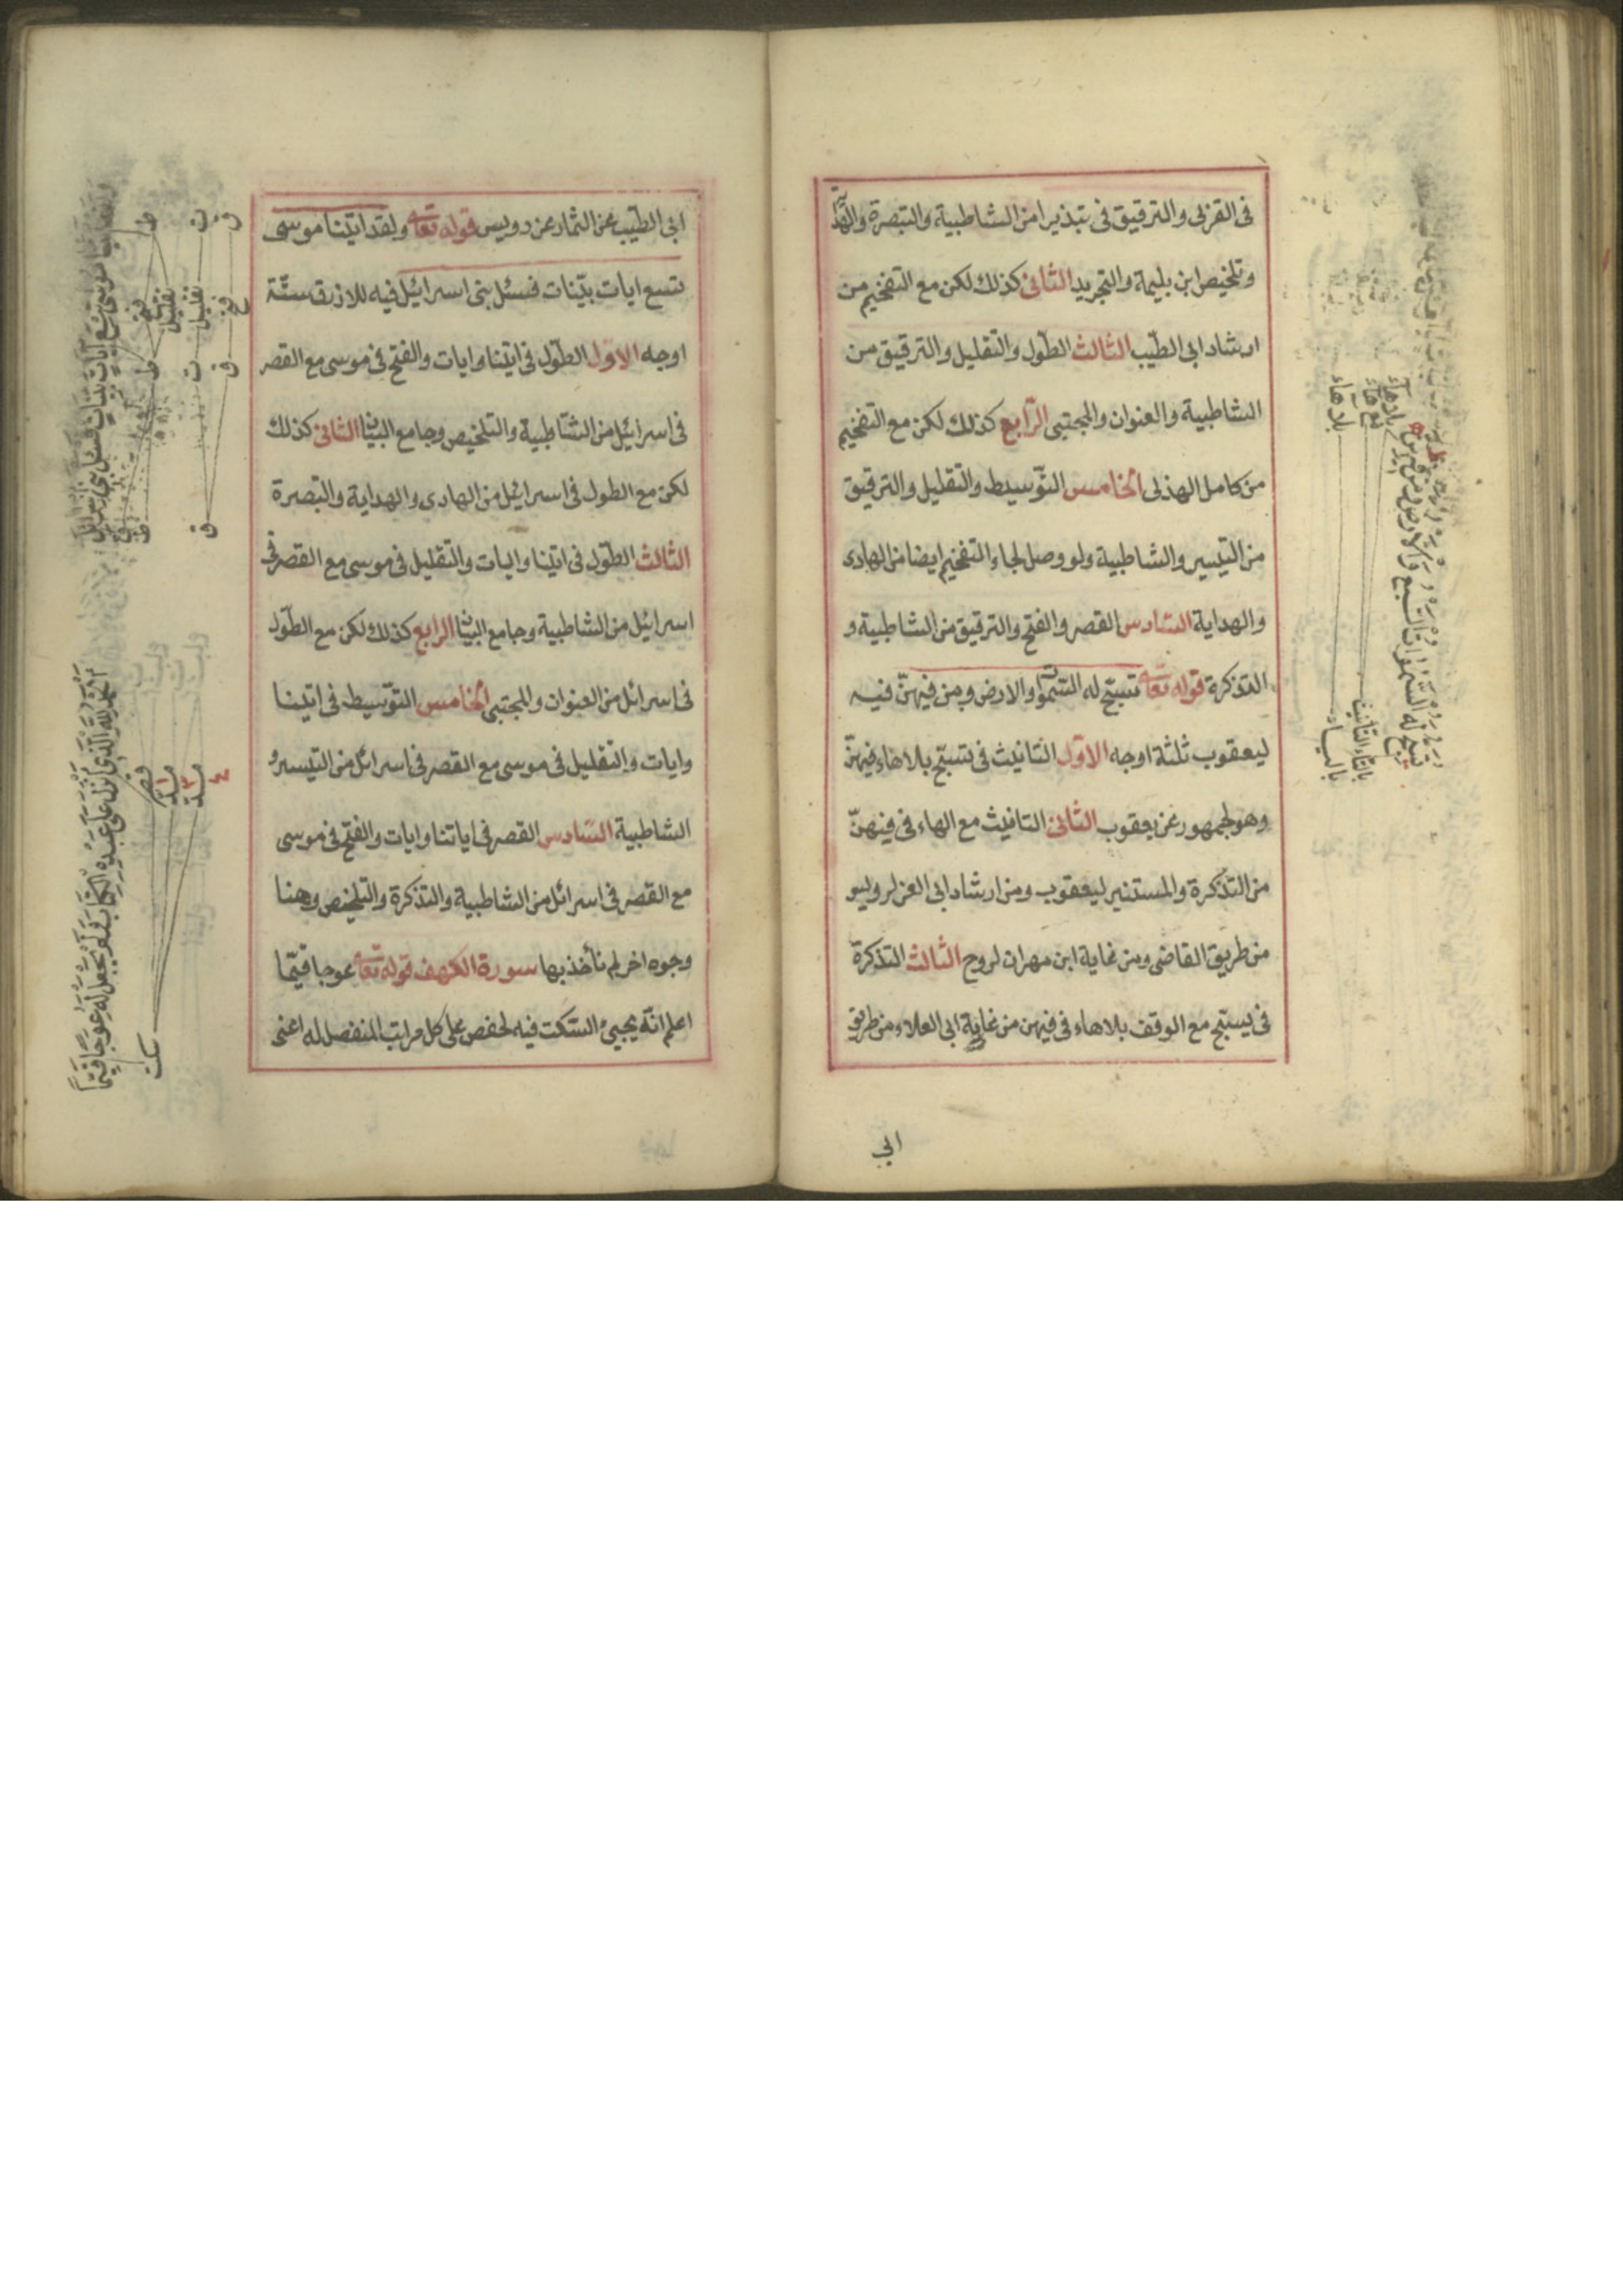 فى القربى والترقيق فى تبذيرا من الشاطبية والتبصرة و
وتلخيص ابن بليمة والتجريد الثانى كذلك لكن مع التفخيم من
ارشاد ابى الطيّب الثالث الطول والتقليل والترقيق من
الشاطبية والعنوان والمجتبى الرّابع كذلك لكن مع التفخيم
من كامل الهذلى الخامس التوّسيط والتقليل والترقيق
من التيسير والشاطبية ولو وصل لجاء التفخيم ايضا من الهادى
والهداية السّادس القصر والفتح والترقيق من الشاطبية و
التذكرة قوله تعالى تسبّح له السّموات والارض ومن فيهنّ فيه
ليعقوب ثلثة اوجه الاوّل التانيث فى تسبّح بلاهاء فيهنّ
وهو لجمهور عن يعقوب الثانى التانيث مع الهاء فى فيهنّ
من التذكرة والمستنير ليعقوب ومن ارشاد ابى العز لرويس
من طريق القاضى ومن غاية ابن مهران لروح الثالث التذكرة
فى يسبّح مع الوقف بلاهاء فى فيهن من غاية ابى العلاء من طريق
ابى
بلاهاء
مع هاء
بلاهاء
بالتاء التانيث
بالياء
تسبح له السموات السبع والارض ومن فيهن
ابى الطيّب عن التمار عن رويس قوله تعالى ولقد اتينا موسى
تسع ايات بيّنات فسئل بنى اسرائيل فيه للازرق ستّة
اوجه الاوّل الطّول فى اتينا وايات والفتح فى موسى مع القصر
فى اسرائيل من الشاطبية والتلخيص وجامع البيان الثانى كذلك
لكن مع الطول فى اسرائيل من الهادى والهداية والتبصرة
الثالث الطّول فى اتينا وايات والتقليل فى موسى مع القصر فى
اسرائيل من الشاطبية وجامع البيان الرابع كذلك لكن مع الطّول
فى اسرائل من العنوان والمجتبى الخامس التوّسيط فى اتينا
وايات والتّقليل فى موسى مع القصر فى اسرائل من التيسير و
الشاطبية السّادس القصر فى اياتنا وايات والفتح فى موسى
مع القصر فى اسرائل من الشاطبية والتذكرة والتلخيص وهنا
وجوه اخر لم نأخذ بها سورة الكهف قوله تعالى عوجا قيّما
اعلم انّه يجيئ السّكت فيه لحفص على كل مراتب المنفصل له اعنى
موسى تسع آيات بينات فسئل بنى اسرائيل
ط
ت
ق
فتح
تقليل
تقليل
فتح
ط
ت
ق
ق
الحمد لله الذى انزل على عبده الكتاب ولم يجعل له عوجا قيما
قصر
مد
مد
٣
٤
سكت